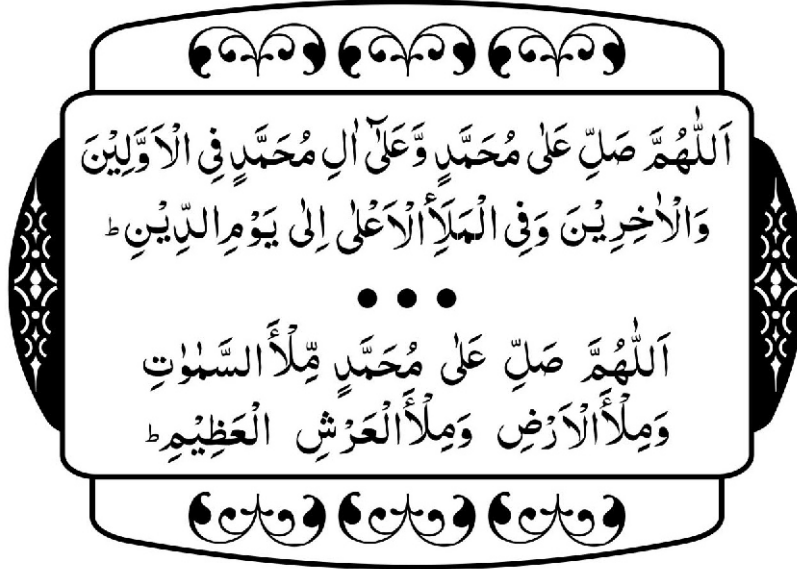 اَللّٰهُمَّ صَلِّ عَلٰى مُحَمَّدٍ وَّعَلٰٓى اٰلِ مُحَمَّدٍ فِى الْاَوَّلِيْنَ
وَالْاٰخِرِيْنَ وَفِى الْمَلَأِ الْاَعْلٰى اِلٰى يَوْمِ الدِّيْنِ ؕ
● ● ●
اَللّٰهُمَّ صَلِّ عَلٰى مُحَمَّدٍ مِّلْأَ السَّمٰوٰتِ
وَمِلْأَ الْاَرْضِ وَمِلْأَ الْعَرْشِ الْعَظِيْمِ ؕ